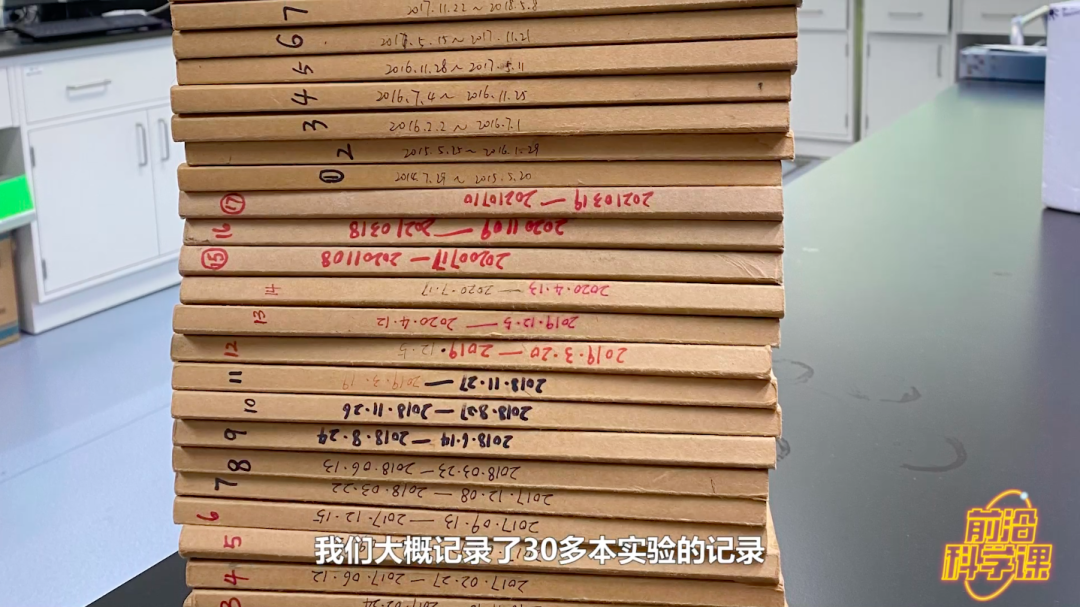 7 2017.11.22 ~ 2018.5.8
6
5 2016.11.28 ~ 2017.5.11
4 2016.7.4 ~ 2016.11.25
3 2016.2.2 ~ 2016.7.1
2 2015.5.25 ~ 2016.1.29
① ~ 2015.5.20
⑰ 20210319 — 20210710
16 20201109 — 20210318
⑮ 20200717 — 20201108
14 2020.4.13 — 2020.7.17
13 2019.12.5 — 2020.4.12
12 2019.3.20 — 2019.12.5
11 2018.11.27 — 2019.3.19
10 2018.8.27 — 2018.11.26
9 2018.6.14 — 2018.8.24
8 2018.03.23 — 2018.06.13
7 2017.12.08 — 2018.03.22
6 2017.09.13 — 2017.12.15
5
4 2017.02.27 — 2017.06.12
3
我们大概记录了30多本实验的记录
前沿
科学课